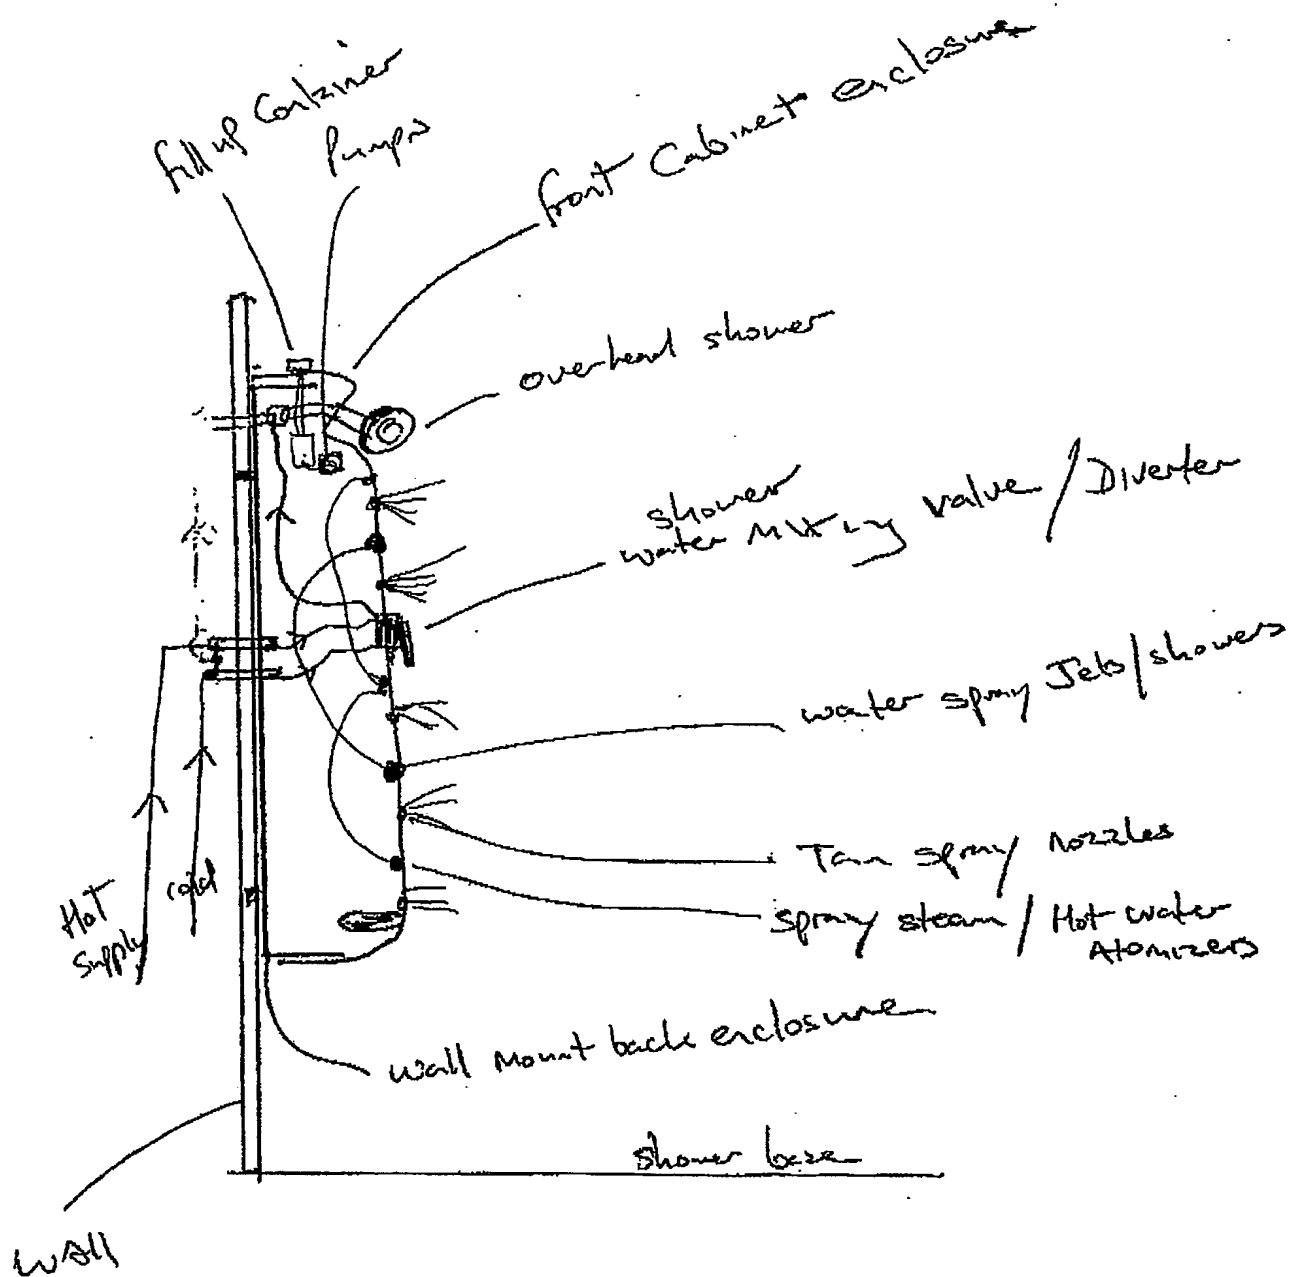 fill up Container
Pumps
front Cabinet enclosure
overhead shower
shower
water Mixing valve / Diverter
water spray Jets/showers
Tan spray nozzles
spray steam / Hot water
Atomizers
Hot
supply
cold
wall Mount back enclosure
shower base
WAll